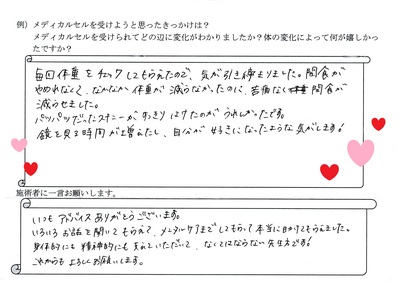 例）メディカルセルを受けようと思ったきっかけは？
メディカルセルを受けられてどの辺に変化がわかりましたか？体の変化によって何が嬉しかっ
たですか？
毎回体重をチェックしてもらえたので、気が引き締まりました。間食が
やめれなくて、なかなか体重が減らなかったのに、苦痛なく間食が
減らせました。
パツパツだったスキニーがすっきりはけたのがうれしかったです。
鏡を見る時間が増えたし、自分が好きになったような気がします！
施術者に一言お願いします。
いつもアドバイスありがとうございます。
いろいろお話を聞いてもらえて、メンタルケアまでしてもらって本当に助けてもらえました。
身体的にも精神的にも支えていただいて、なくてはならない先生方です！
これからもよろしくお願いします。